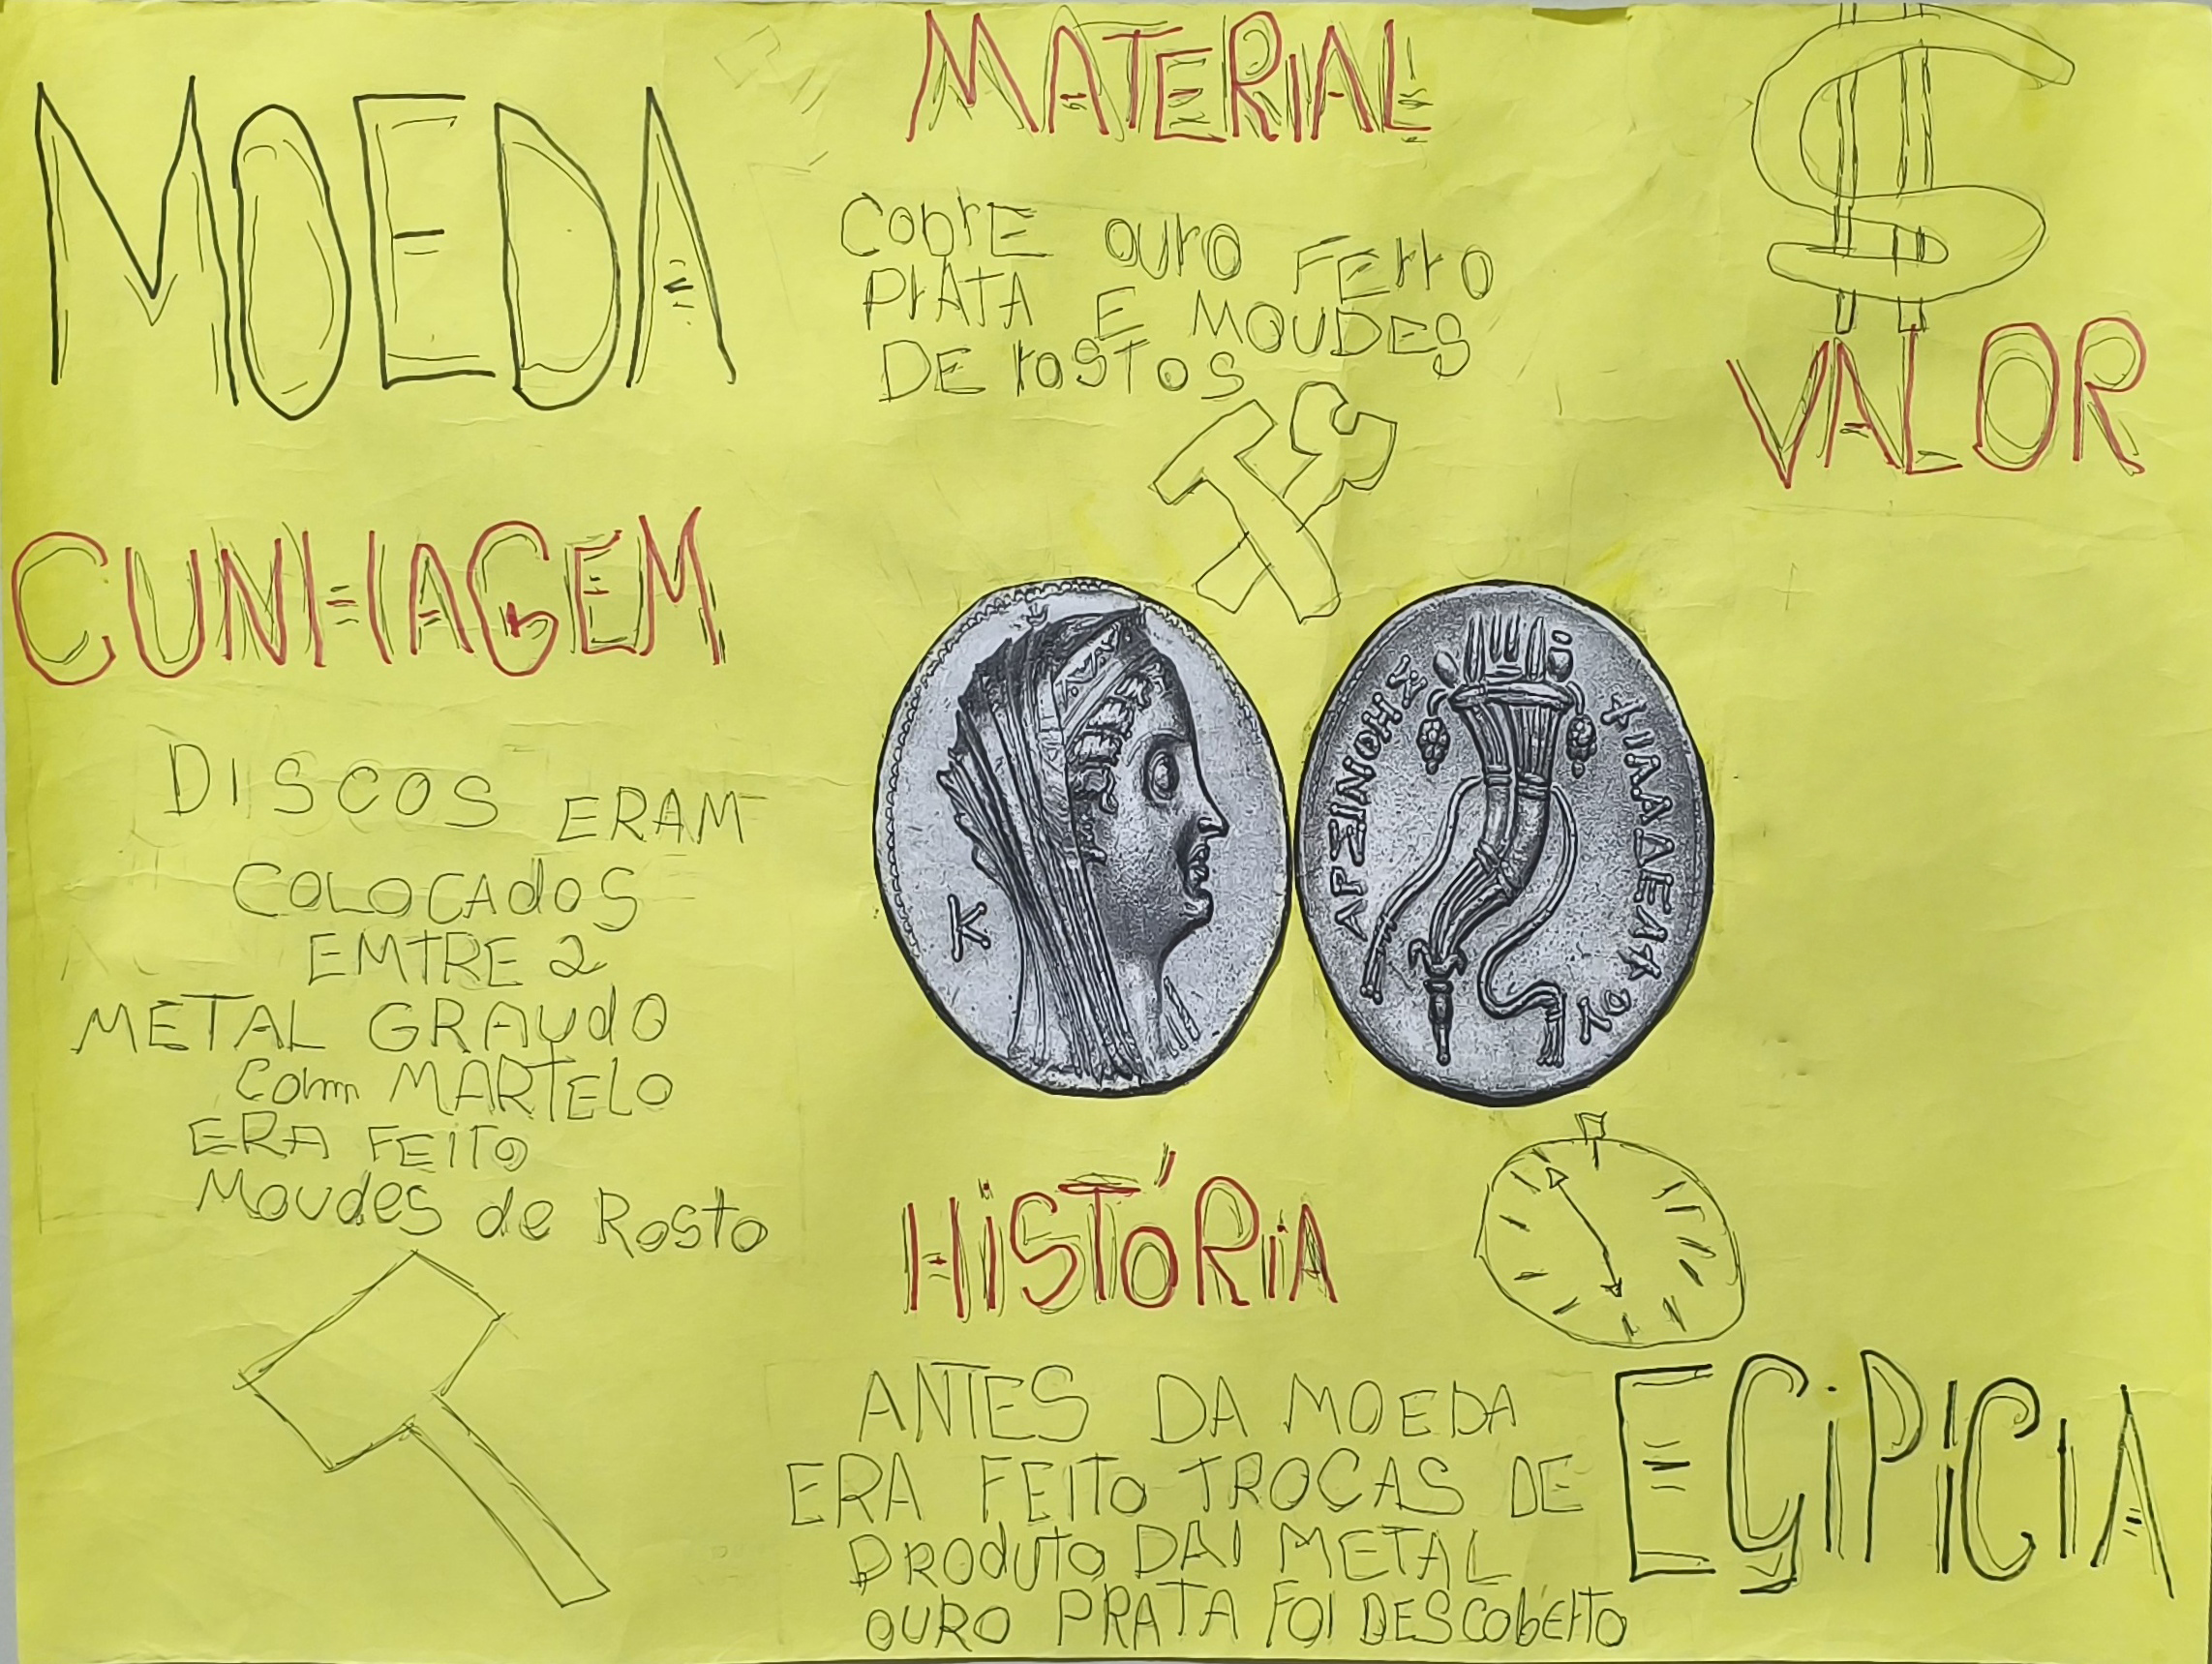 MOEDA
MATERIAL
CobrE ouro FErro
PrATA E MOUDES
DE rosTos
$
VALOR
CUNHAGEM
DISCOS ERAM
COLOCAdOS
EMTRE 2
METAL GRAUdO
Com MARTELO
ERA FEITO
Moudes de Rosto
K
ΑΡΣΙΝΟΗΣ
ΦΙΛΑΔΕΛΦΟΥ
HiSTÓRiA
ANTES DA MOEDA
ERA FEITO TROCAS DE
PROduto DAI METAL
OURO PRATA FOI DESCObErto
EGiPICIA